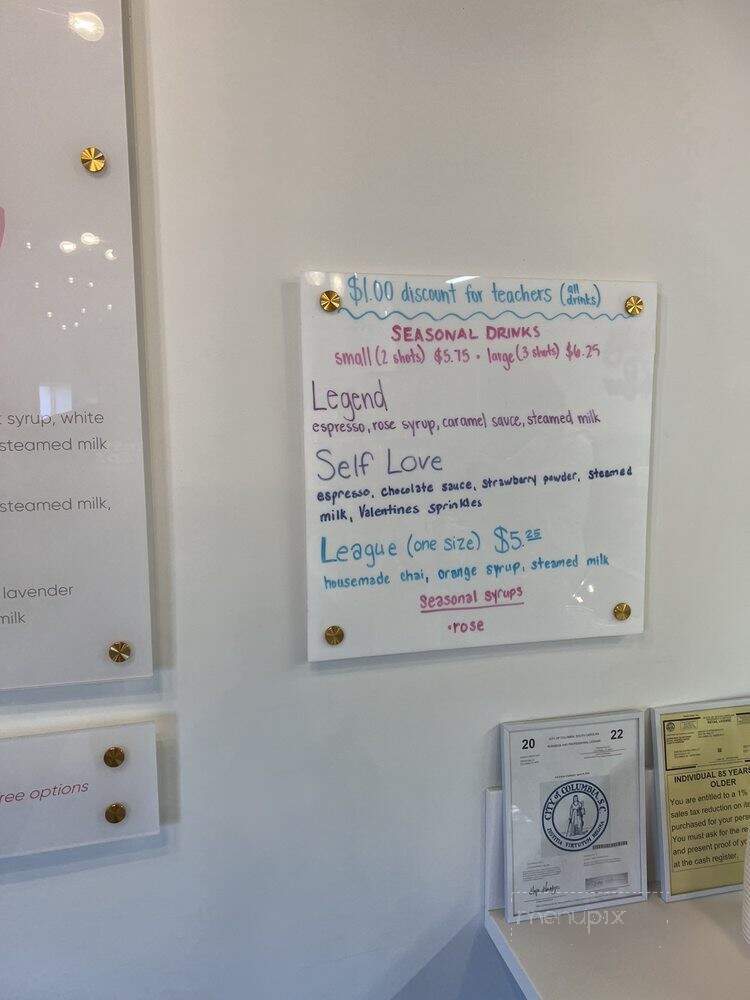 syrup, white
steamed milk
steamed milk,
lavender
milk
ree options
$1.00 discount for teachers (all drinks)
SEASONAL DRINKS
small (2 shots) $5.75 • large (3 shots) $6.25
Legend
espresso, rose syrup, caramel sauce, steamed milk
Self Love
espresso, chocolate sauce, strawberry powder, steamed
milk, Valentines sprinkles
League (one size) $5.25
housemade chai, orange syrup, steamed milk
Seasonal syrups
•rose
20 22
CITY OF COLUMBIA, SOUTH CAROLINA
CITY of COLUMBIA, S.C.
JUSTITIA VIRTUTUM REGINA
INDIVIDUAL 85 YEARS
OLDER
You are entitled to a 1%
sales tax reduction on ite
purchased for your pers
You must ask for the re
and present proof of yo
at the cash register.
menupix